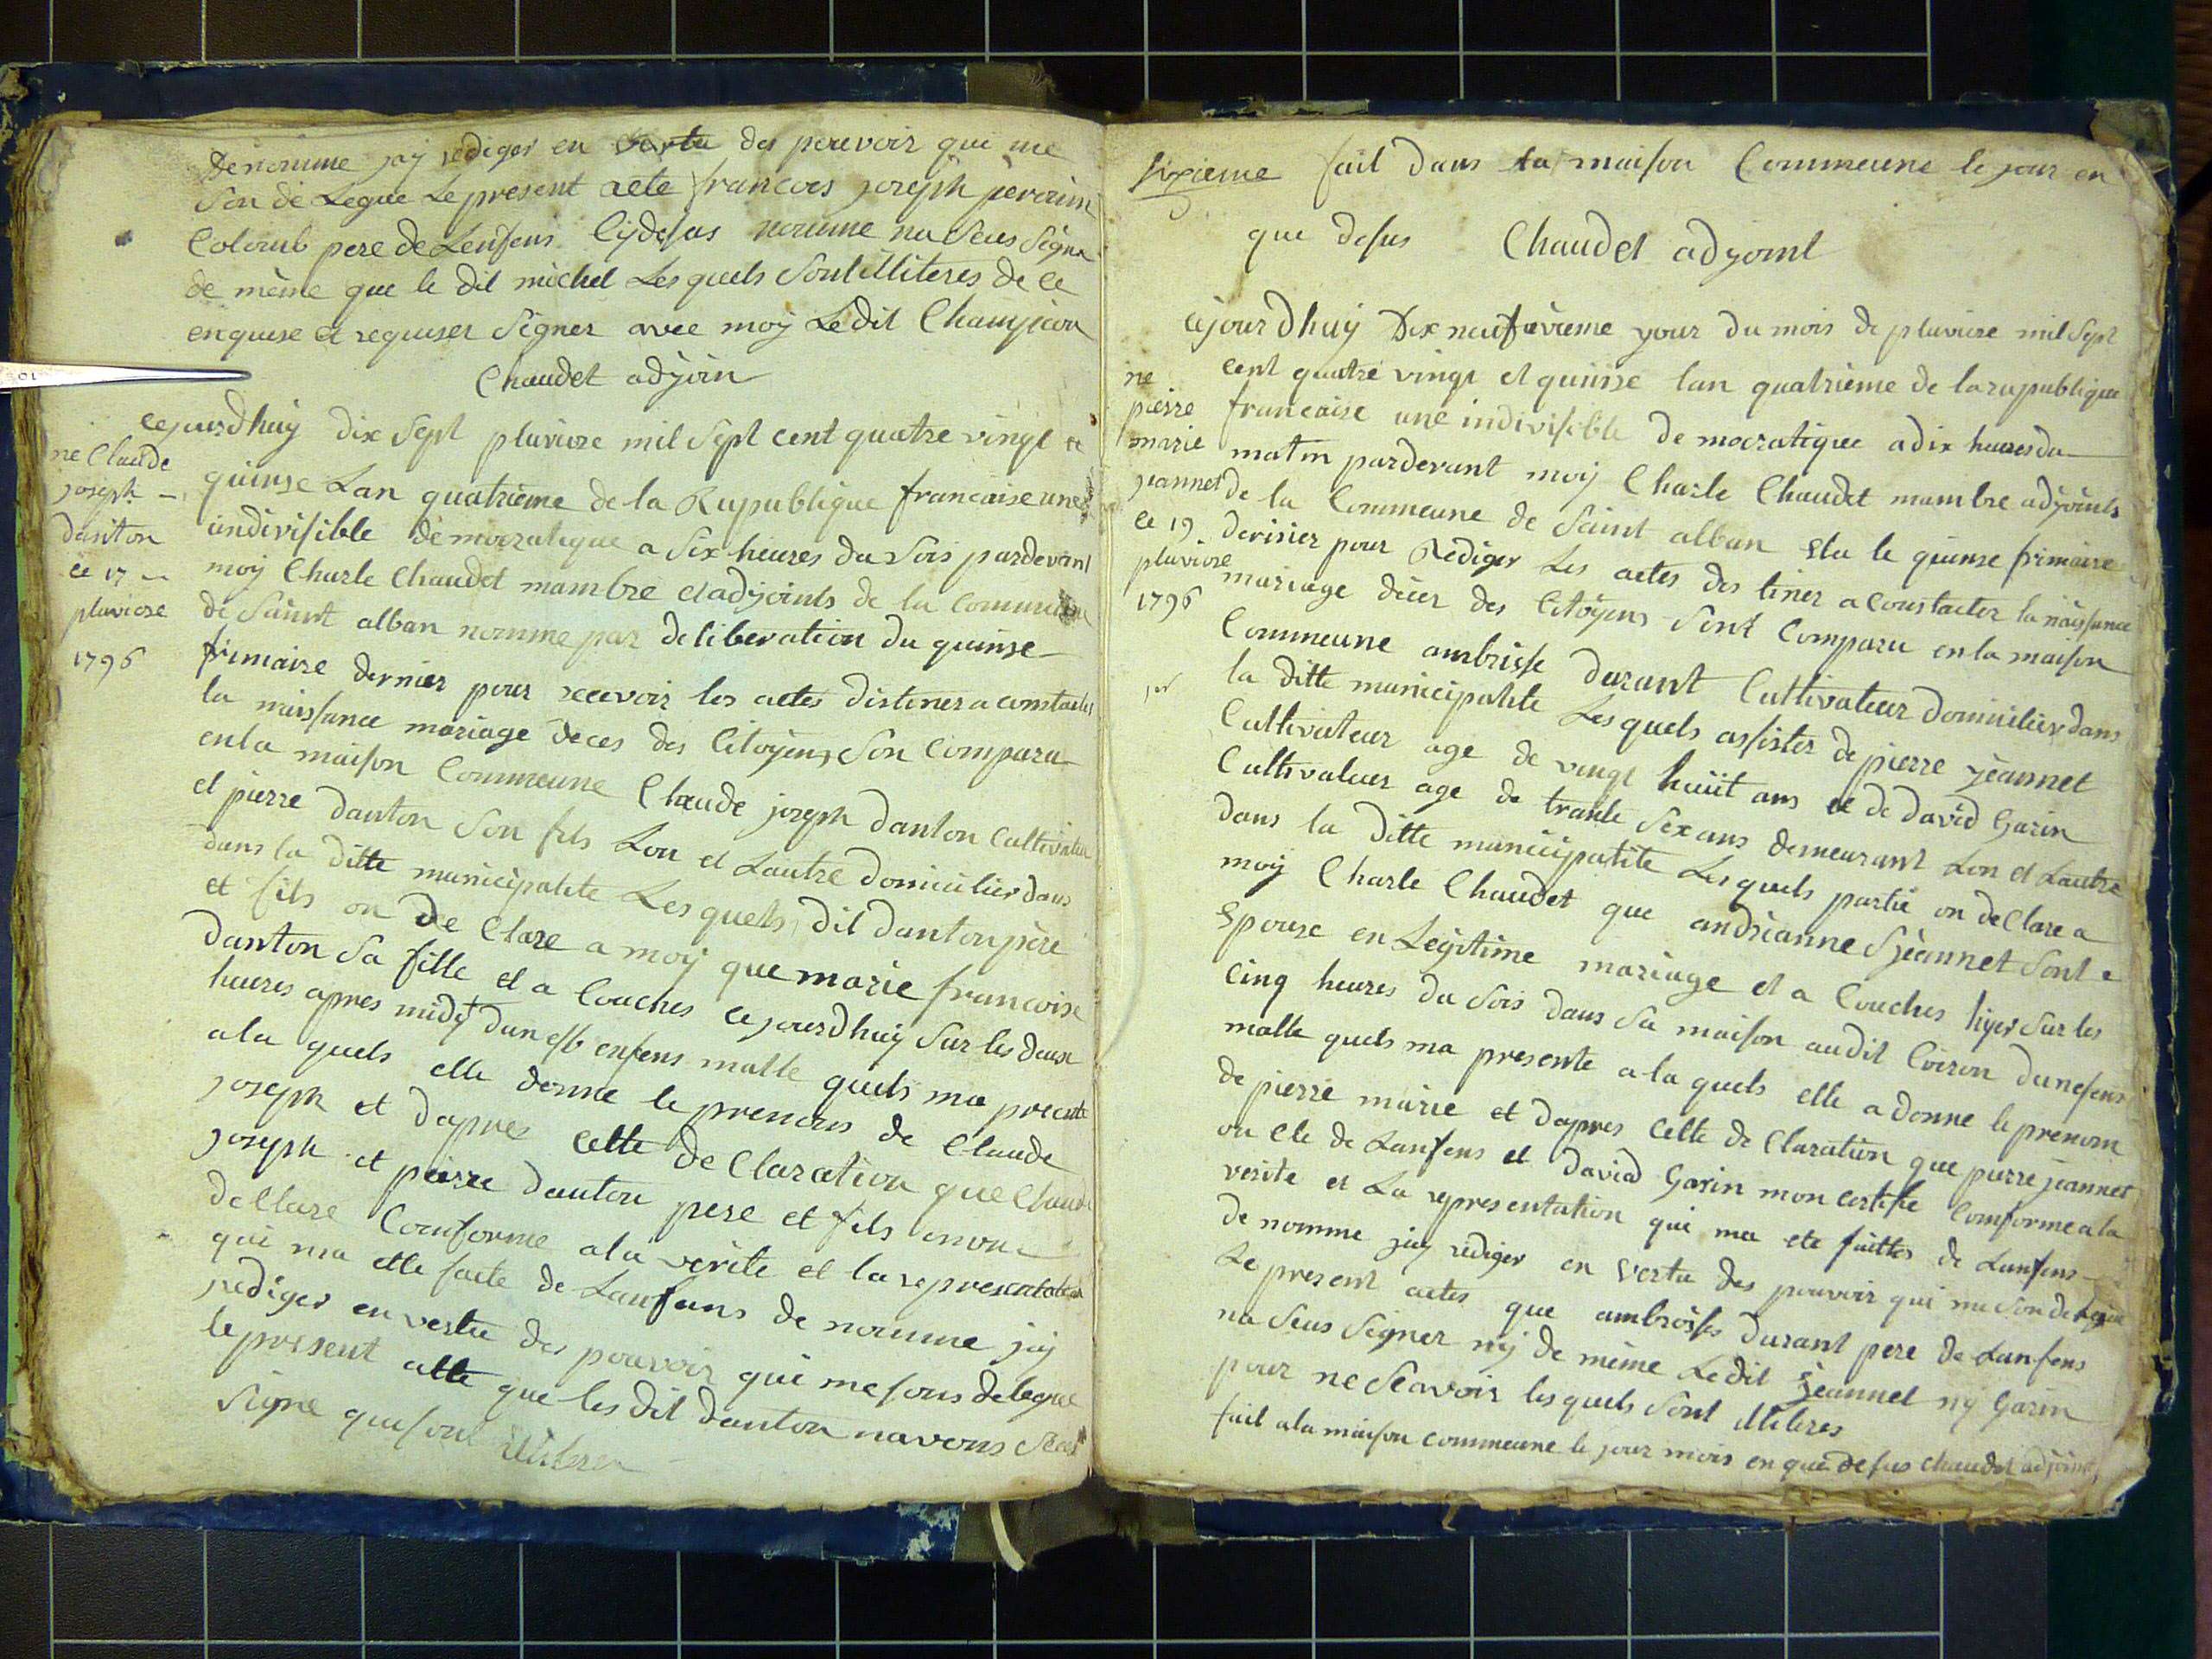 De nomme jaÿ rediger en vertu des pouvoir qui me
Son de Legue Le present acte francois joseph
Colomb pere de Lenfens Cydesus nomme na Seus Signa
de mème que le dit michel Lesquels Sont illiteres de ce
enquise et requiser Signer avec moÿ Ledit
Chaudet adjoin
cejourdhuÿ dix Sept pluviose mil Sept cent quatre vingt et
quinse Lan quatrieme de la Rupublique francaise une
indivisible democratique a Six heures du Soir pardevant
moÿ Charle Chaudet mambre et adjoints de la Commune
de Saint alban nomme par deliberation du quinse
frimaire dernier pour recevoir les actes distiner a constater
la naissance mariage deces des Citoÿens Son Comparu
enla maison Commeune Claude joseph danton Cultivateur
et pierre danton Son fils Lon et Lautre domicilier dans
dans la ditte municipalite Lesquels dit danton père
et fils on de Clare a moÿ que marie francoise
danton Sa fille et a Couches cejourdhuÿ Sur les deux
heures apres midÿ dun enfens malle quels ma presente
ala quels elle donne le prenons de Claude
joseph et dapres cette de Claration que Claude
joseph et peirre danton pere et fils mon
de Clare Conforme ala verite et la representation
qui ma ette faite de Lanfans de nomme jaÿ
rediger en vertu des pouvoir qui me sons delegue
le present atte que les dit danton navons Seus
Signe qui sont
ne Claude
joseph
danton
ce 17
pluviose
1796
Sixieme fait dans la maison Commeune le jour en
que desus Chaudet adjoint
cejourdhuÿ Dix neufvieme jour du mois de pluviose mil Sept
cent quatre vingt et quinse lan quatrieme de la rupublique
francaise une indivisible democratique a dix heures du
matin pardevant moÿ Charle Chaudet mambre adjoints
de la Commeune de Saint alban Elu le quinse frimaire
dernier pour Rediger Les actes des tiner a Constacter la naissance
mariage décer des Citoÿens Sont Comparu en la maison
Commeune ambrisse durant Cultivateur domicilier dans
la ditte municipalite Lesquels assister de pierre jeannet
Cultivateur age de vingt huiit ans et de david Garin
Cultivateur age de trante Six ans demeurant Lon et Lautre
dans la ditte municipalite Lesquels partie on de Clare a
moÿ Charle Chaudet que andrianne jèannet Sont e
Epouse en Legitime mariage et a Couches hiyer Sur les
cinq heures du Soir dans Sa maison audit Coiron dun efens
malle quels ma presente a la quels elle a donne le prenom
de pierre marie et dapres Cette de Claration que pierre jeannet
on Cle de Lanfens et david Garin mon certifie Comforme a la
verite et La representation qui ma ete faittes de Lanfens
de nomme jaÿ rediger en vertu des pouvoir qui me Son delegue
Le present actes que ambroise durant pere de Lanfens
na Seus Signer nÿ de mème Ledit jeannet nÿ Garin
pour ne Scavoir lesquels Sont illiteres
fait ala maison commeune le jour mois en que desus chaudet adjoint
ne
pierre
marie
jeannet
ce 19
pluviose
1796